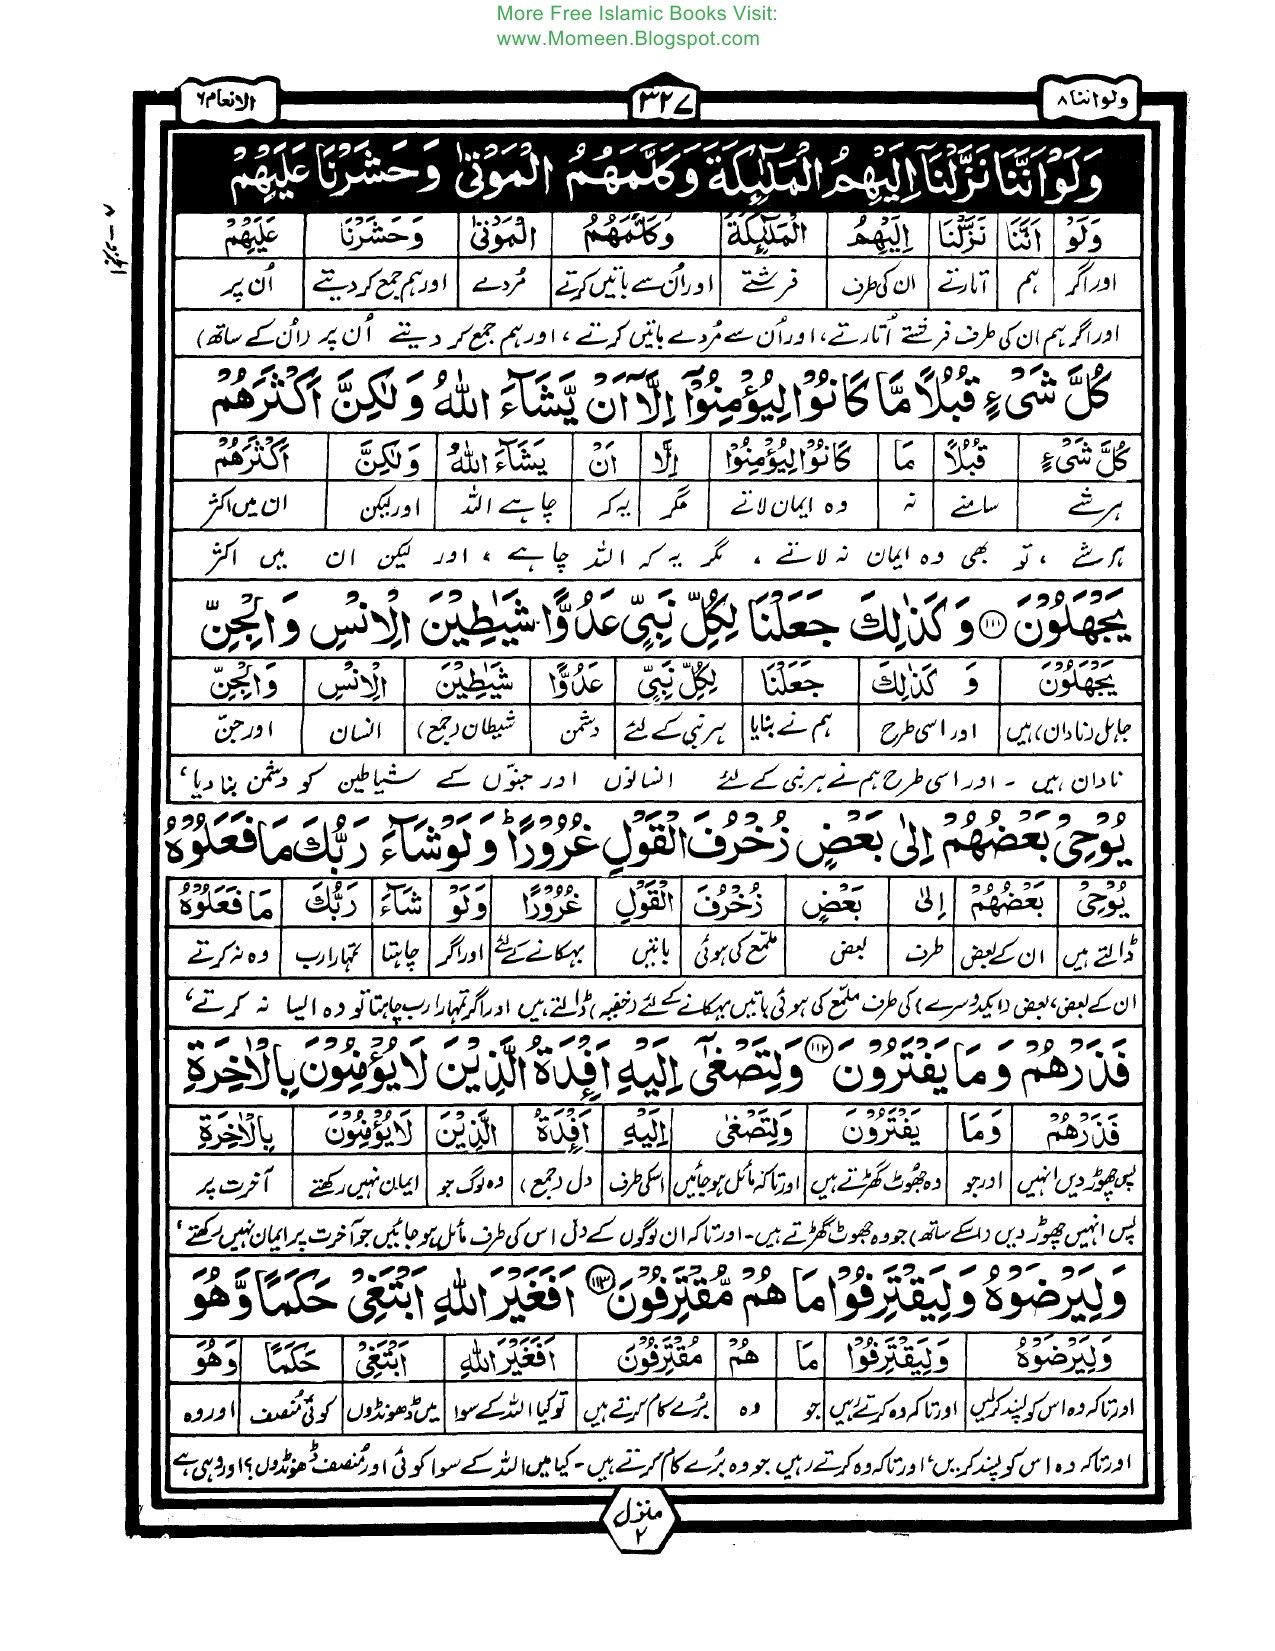 More Free Islamic Books Visit:
www.Momeen.Blogspot.com
ولو اننا ۸
۳۲۷
الانعام ۶
وَلَوْ اَنَّنَا نَزَّلْنَاۤ اِلَيْهِمُ الْمَلٰٓئِكَةَ وَكَلَّمَهُمُ الْمَوْتٰى وَحَشَرْنَا عَلَيْهِمْ
وَلَوْ اَنَّنَا نَزَّلْنَا اِلَيْهِمُ الْمَلٰٓئِكَةَ وَكَلَّمَهُمُ الْمَوْتٰى وَحَشَرْنَا عَلَيْهِمْ
اور اگر ہم اتارتے ان کی طرف فرشتے اور اُن سے باتیں کرتے مُردے اور ہم جمع کر دیتے اُن پر
اور اگر ہم ان کی طرف فرشتے اُتارتے، اور اُن سے مُردے باتیں کرتے، اور ہم جمع کر دیتے اُن پر (اُن کے ساتھ)
كُلَّ شَىْءٍ قُبُلًا مَّا كَانُوْا لِيُؤْمِنُوْۤا اِلَّاۤ اَنْ يَّشَآءَ اللّٰهُ وَلٰكِنَّ اَكْثَرَهُمْ
كُلَّ شَىْءٍ قُبُلًا مَا كَانُوْا لِيُؤْمِنُوْا اِلَّا اَنْ يَشَآءَ اللّٰهُ وَلٰكِنَّ اَكْثَرَهُمْ
ہر شے سامنے نہ وہ ایمان لاتے مگر یہ کہ چاہے اللہ اور لیکن ان میں اکثر
ہر شے، تو بھی وہ ایمان نہ لاتے، مگر یہ کہ اللہ چاہے، اور لیکن ان میں اکثر
يَجْهَلُوْنَ ۱۱۱ وَكَذٰلِكَ جَعَلْنَا لِكُلِّ نَبِىٍّ عَدُوًّا شَيٰطِيْنَ الْاِنْسِ وَالْجِنِّ
يَجْهَلُوْنَ وَ كَذٰلِكَ جَعَلْنَا لِكُلِّ نَبِىٍّ عَدُوًّا شَيٰطِيْنَ الْاِنْسِ وَالْجِنِّ
جاہل (نادان) ہیں اور اسی طرح ہم نے بنایا ہر نبی کے لئے دشمن شیطان (جمع) انسان اور جنّ
نادان ہیں - اور اسی طرح ہم نے ہر نبی کے لئے انسانوں اور جنوّں کے شیاطین کو دشمن بنا دیا،
يُوْحِىْ بَعْضُهُمْ اِلٰى بَعْضٍ زُخْرُفَ الْقَوْلِ غُرُوْرًا ؕ وَلَوْ شَآءَ رَبُّكَ مَا فَعَلُوْهُ
يُوْحِىْ بَعْضُهُمْ اِلٰى بَعْضٍ زُخْرُفَ الْقَوْلِ غُرُوْرًا وَلَوْ شَآءَ رَبُّكَ مَا فَعَلُوْهُ
ڈالتے ہیں ان کے بعض طرف بعض ملمّع کی ہوئی باتیں بہکانے کے لئے اور اگر چاہتا تمہارا رب وہ نہ کرتے
ان کے بعض، بعض (ایک دوسرے) کی طرف ملمّع کی ہوئی باتیں بہکانے کے لئے (خفیہ) ڈالتے ہیں اور اگر تمہارا رب چاہتا تو وہ ایسا نہ کرتے،
فَذَرْهُمْ وَمَا يَفْتَرُوْنَ ۱۱۲ وَلِتَصْغٰۤى اِلَيْهِ اَفْـِٕدَةُ الَّذِيْنَ لَا يُؤْمِنُوْنَ بِالْاٰخِرَةِ
فَذَرْهُمْ وَمَا يَفْتَرُوْنَ وَلِتَصْغٰى اِلَيْهِ اَفْـِٕدَةُ الَّذِيْنَ لَا يُؤْمِنُوْنَ بِالْاٰخِرَةِ
پس چھوڑ دیں انہیں اور جو وہ جھُوٹ گھڑتے ہیں اور تاکہ مائل ہو جائیں اسکی طرف دل (جمع) وہ لوگ جو ایمان نہیں رکھتے آخرت پر
پس انہیں چھوڑ دیں (اسکے ساتھ) جو وہ جھوٹ گھڑتے ہیں - اور تاکہ ان لوگوں کے دل اس کی طرف مائل ہو جائیں جو آخرت پر ایمان نہیں رکھتے،
وَلِيَرْضَوْهُ وَلِيَقْتَرِفُوْا مَا هُمْ مُّقْتَرِفُوْنَ ۱۱۳ اَفَغَيْرَ اللّٰهِ اَبْتَغِىْ حَكَمًا وَّهُوَ
وَلِيَرْضَوْهُ وَلِيَقْتَرِفُوْا مَا هُمْ مُقْتَرِفُوْنَ اَفَغَيْرَ اللّٰهِ اَبْتَغِىْ حَكَمًا وَّهُوَ
اور تاکہ وہ اس کو پسند کرلیں اور تاکہ وہ کرتے رہیں جو وہ بُرے کام کرتے ہیں تو کیا اللہ کے سوا میں ڈھونڈوں کوئی مُنصف اور وہ
اور تاکہ وہ اس کو پسند کریں، اور تاکہ وہ کرتے رہیں جو وہ بُرے کام کرتے ہیں - کیا میں اللہ کے سوا کوئی اور مُنصف ڈھونڈوں؟ اور وہی ہے
منزل ۲